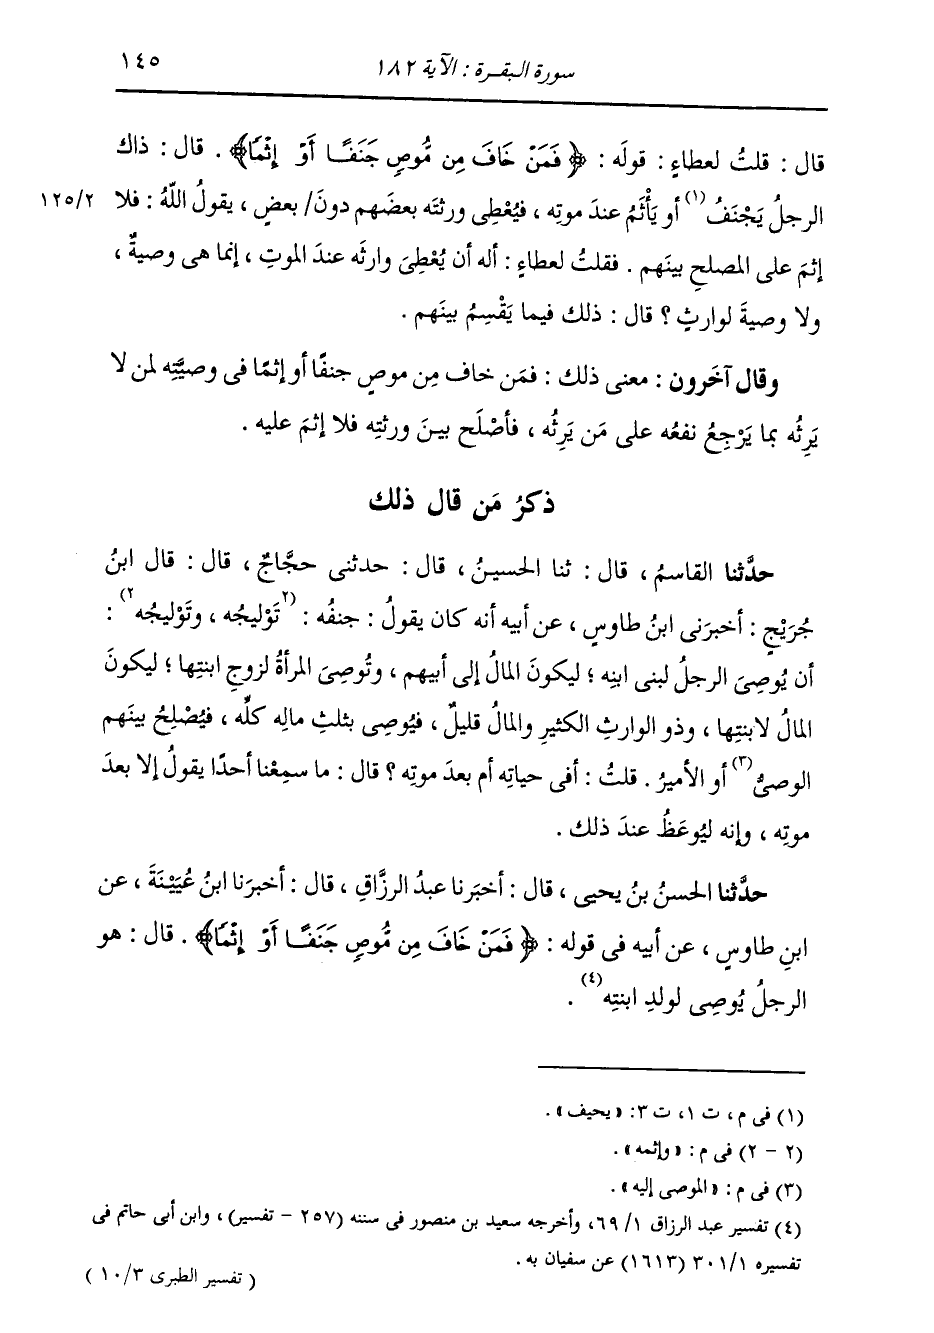 سورة البقرة : الآية ١٨٢
١٤٥
قال : قلتُ لعطاءٍ : قوله : ﴿ فَمَنْ خَافَ مِن مُّوصٍ جَنَفًا أَوْ إِثْمًا﴾ . قال : ذاك
الرجلُ يَجْنَفُ(١) أو يَأْثَمُ عندَ موتِه ، فيُعْطِى ورثتَه بعضَهم دونَ/ بعضٍ ، يقولُ اللَّهُ : فلا ١٢٥/٢
إثمَ على المصلحِ بينَهم . فقلتُ لعطاءٍ : أله أن يُعْطِىَ وارثَه عندَ الموتِ ، إنما هى وصيةٌ ،
ولا وصيةَ لوارثٍ ؟ قال : ذلك فيما يَقْسِمُ بينَهم .
وقال آخَرون : معنى ذلك : فمَن خاف مِن موصٍ جنفًا أو إثمًا فى وصيَّتِه لمن لا
يَرِثُه بما يَرْجِعُ نفعُه على مَن يَرِثُه ، فأصْلَح بينَ ورثتِه فلا إثمَ عليه .
ذكرُ مَن قال ذلك
حدَّثنا القاسمُ ، قال : ثنا الحسينُ ، قال : حدثنى حجَّاجٌ ، قال : قال ابنُ
جُرَيْجٍ : أخبرَنى ابنُ طاوسٍ ، عن أبيه أنه كان يقولُ : جنفُه : (٢تَوْليجُه ، وتَوْليجُه٢) :
أن يُوصِىَ الرجلُ لبنى ابنِه ؛ ليكونَ المالُ إلى أبيهم ، وتُوصِىَ المرأةُ لزوجِ ابنتِها ؛ ليكونَ
المالُ لابنتِها ، وذو الوارثِ الكثيرِ والمالُ قليلٌ ، فيُوصِى بثلثِ مالِه كلِّه ، فيُصْلِحُ بينَهم
الوصىُّ(٣) أو الأميرُ . قلتُ : أفى حياتِه أم بعدَ موتِه ؟ قال : ما سمِعْنا أحدًا يقولُ إلا بعدَ
موتِه ، وإنه ليُوعَظُ عندَ ذلك .
حدَّثنا الحسنُ بنُ يحيى ، قال : أخبَرنا عبدُ الرزَّاقِ ، قال : أخبرَنا ابنُ عُيَيْنَةَ ، عن
ابنِ طاوسٍ ، عن أبيه فى قوله : ﴿ فَمَنْ خَافَ مِن مُّوصٍ جَنَفًا أَوْ إِثْمًا﴾ . قال : هو
الرجلُ يُوصِى لولدِ ابنتِه(٤) .
(١) فى م، ت ١، ت ٣: «يحيف» .
(٢ - ٢) فى م : «وإثمه» .
(٣) فى م : «الموصى إليه» .
(٤) تفسير عبد الرزاق ١/ ٦٩، وأخرجه سعيد بن منصور فى سننه (٢٥٧ - تفسير) ، وابن أبى حاتم فى
تفسيره ٣٠١/١ (١٦١٣) عن سفيان به .
( تفسير الطبرى ١٠/٣ )